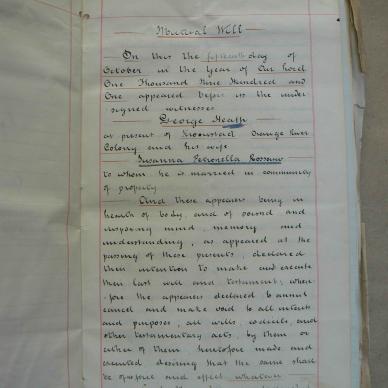 Mutual Will
On this the fifteenth day of
October in the Year of Our Lord
One Thousand Nine Hundred and
One appeared before us the under
signed witnesses
George Heath
at present of Kroonstad Orange River
Colony and his wife
Susanna Petronella Rossouw
to whom he is married in community
of property
And these appearers being in
health of body, and of sound and
disposing mind, memory and
understanding, as appeared at the
passing of these presents, declared
their intention to make and execute
their last will and testament, where-
fore the appearers declared to annul
cancel and make void to all intents
and purposes, all wills, codicils and
other testamentary acts, by them or
either of them heretofore made and
executed desiring that the same shall
be of force and effect whatever